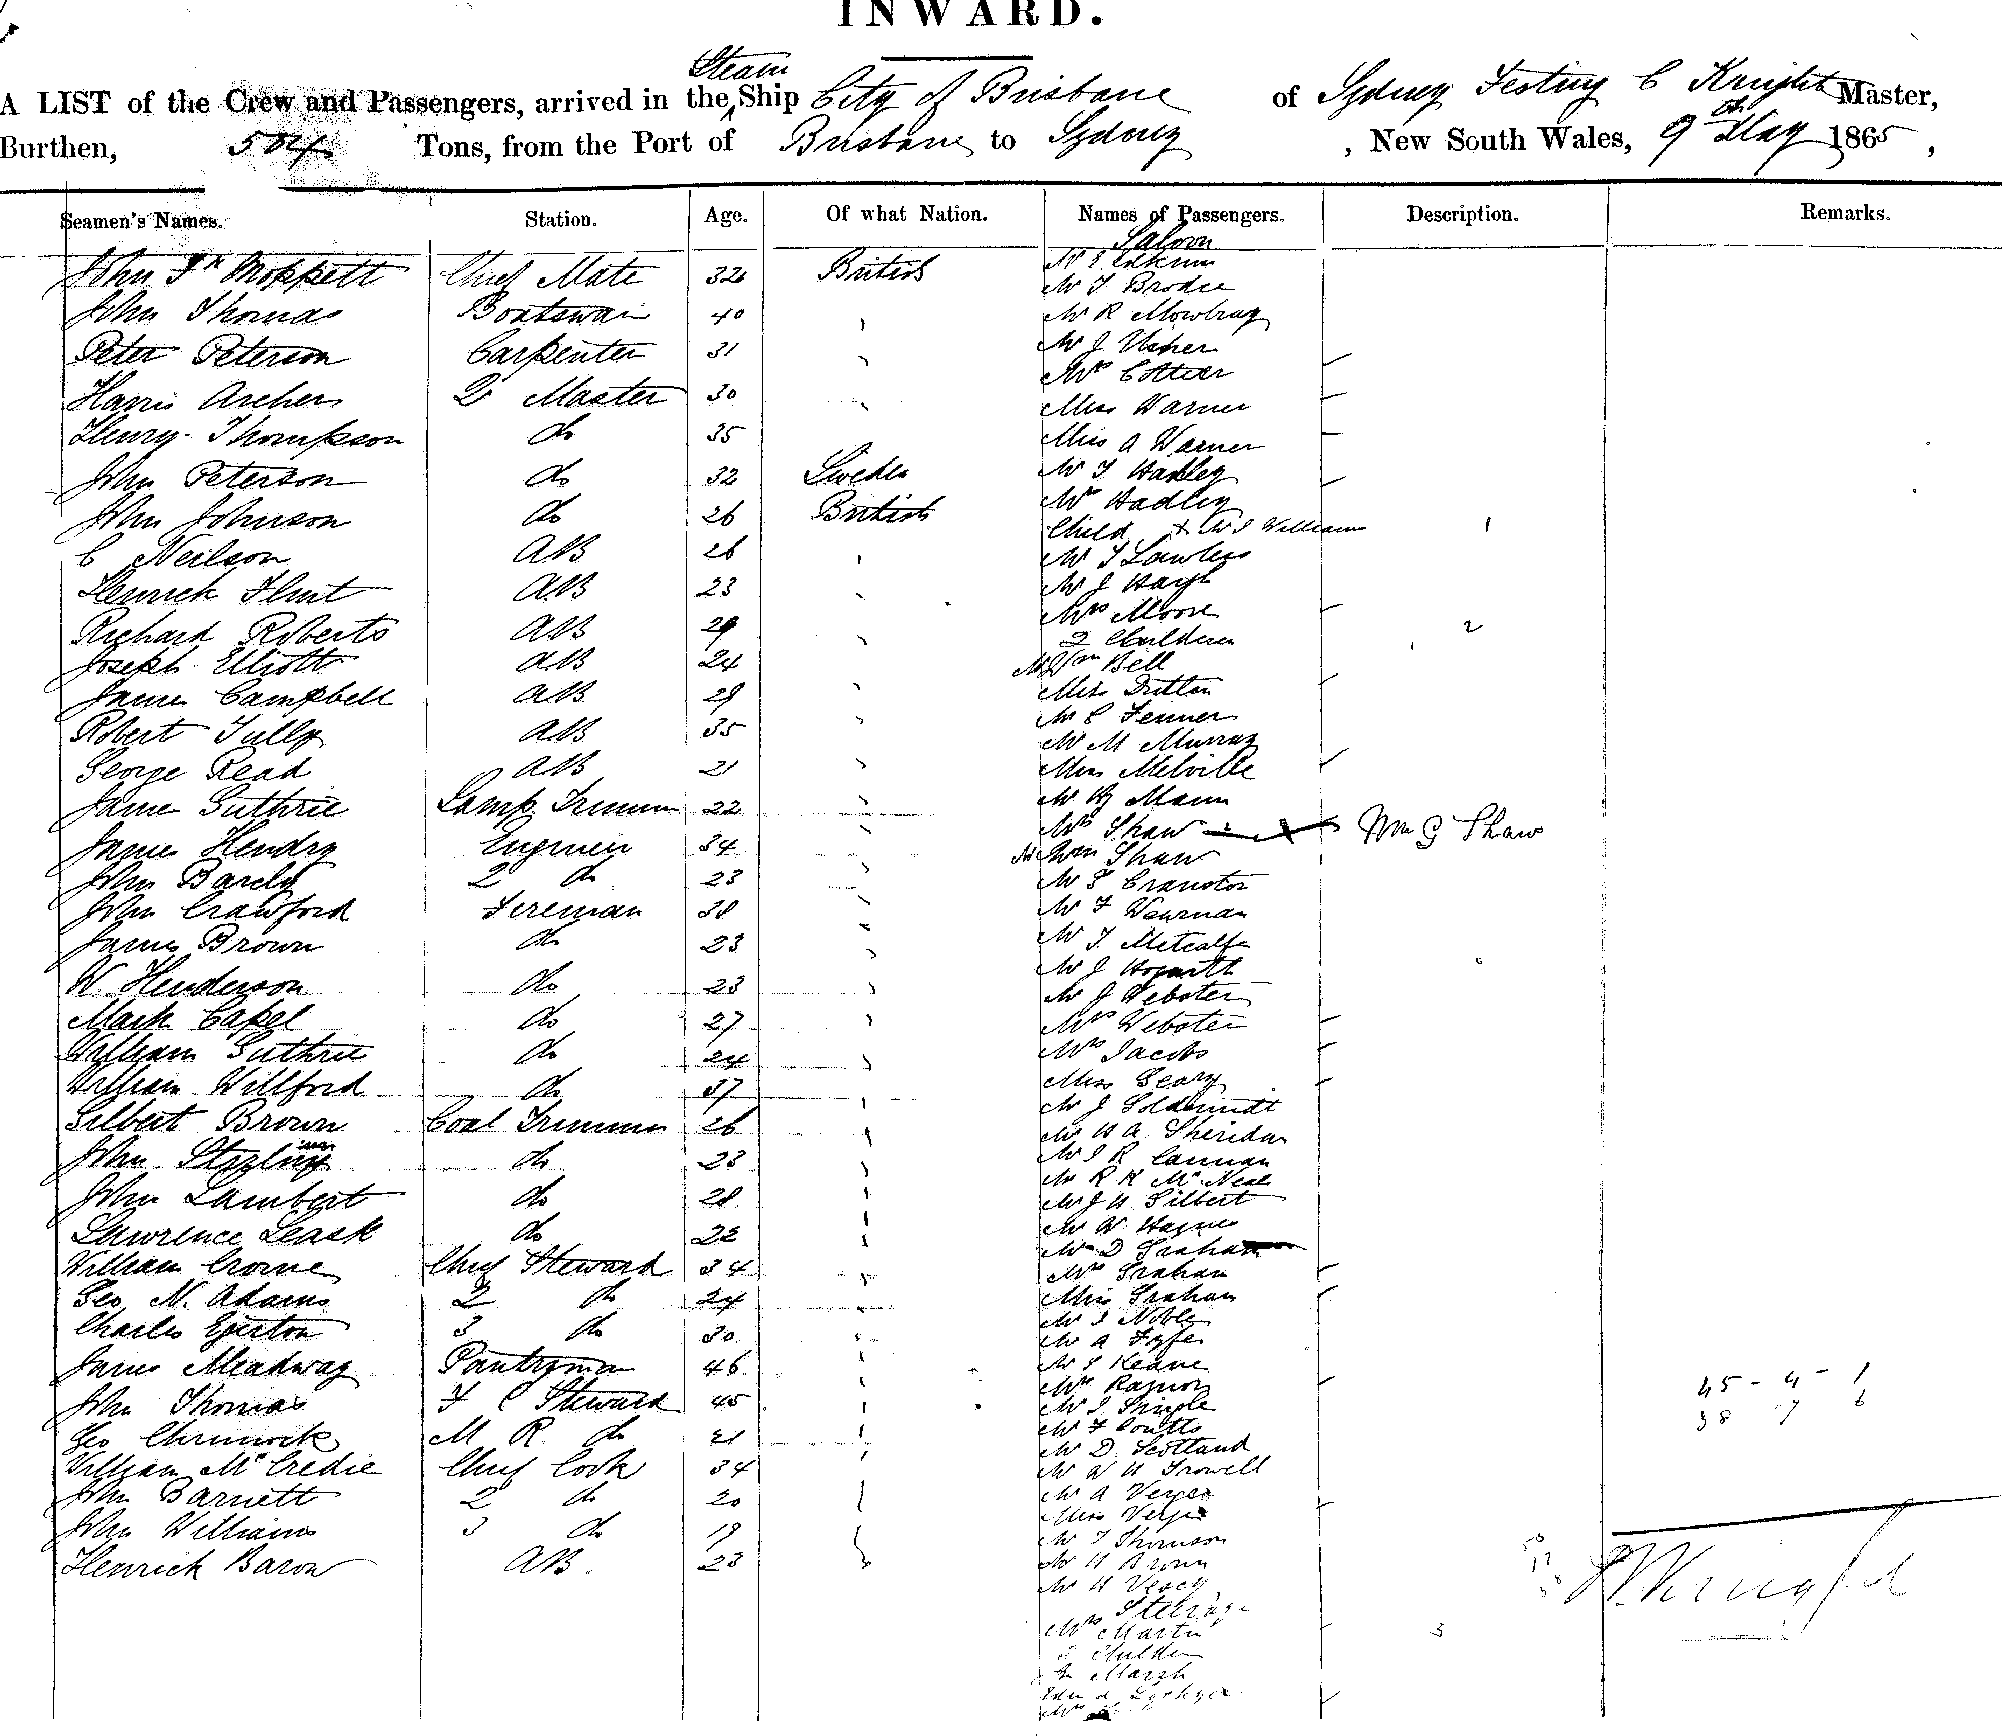 INWARD.
A LIST of the Crew and Passengers, arrived in the Steam Ship City of Brisbane of Sydney Festing C Knight Master,
Burthen, 504 Tons, from the Port of Brisbane to Sydney, New South Wales, 9th May 1865,
Seamen's Names. Station. Age. Of what Nation. Names of Passengers. Description. Remarks.
John Fk Moppett Chief Mate 32 British
John Thomas Boatswain 40
Peter Peterson Carpenter 31
Harris Archer Qr Master 30
Henry Thompson do 35
John Peterson do 32 Sweden
John Johnson do 26 British
C Neilson AB 26
Henrich Flint AB 23
Richard Roberts AB 29
Joseph Elliott AB 24
James Campbell AB 29
Robert Tully AB 35
George Read AB 21
James Guthrie Lamp Trimmer 22
James Hendry Engineer 34
John Barely 2 do 23
John Crawford Fireman 30
James Brown do 23
W. Henderson do 23
Mark Capel do 27
William Guthrie do 24
William Willford do 37
Gilbert Brown Coal Trimmer 26
John do 23
John Lambert do 28
Lawrence Leask do 22
William Crome Chief Steward 34
Geo N. Adams 2 do 24
Charles Egerton 3 do 30
James Meadway Pantryman 46
John Thomas F C Steward 45
Geo M R. do 21
William McCredie Chief Cook 34
John Barnett 2 do 20
John Williams 3 do 19
Henrich Baron AB. 23
Saloon
Mr T Brodie
Mr R Mowbray
Mr J Usher
Mrs Cotter
Miss Warner
Miss A Warner
Mr T Hadley
Mrs Hadley
Child & Mr J Williams 1
Mr T Lawless
Mr J Hargh
Mrs Moore
2 Children 2
Mr Wm Bell
Miss Dutton
Mr C Fenner
Mr M Murray
Miss Melville
Mr Hy Mann
Mrs Shaw Wm G Shaw
Mr Wm Shaw
Mr T Cranston
Mr F Wearnan
Mr T. Metcalfe
Mr J Hogarth
Mr J Webster
Mrs Webster
Mrs Jacobs
Miss Geary
Mr J Goldsmidt
Mr H A Sheridan
Mr J R Cannan
Mr R R McNeal
Mr J H Gilbert
Mr W Haynes
Mr D Graham
Mrs Graham
Miss Graham
Mr J Noble
Mr A Fyfe
Mr J Keane
Mrs Raynor
Mr J
Mr F Coutts
Mr D. Scotland
Mr W H Trowell
Mr A Verge
Miss Verge
Mr T Thomson
Mr H Brown
Mr H Veach
Steerage
Mrs Martin 3
3 Children
Marsh
45 - 4 - 1
38 7 6